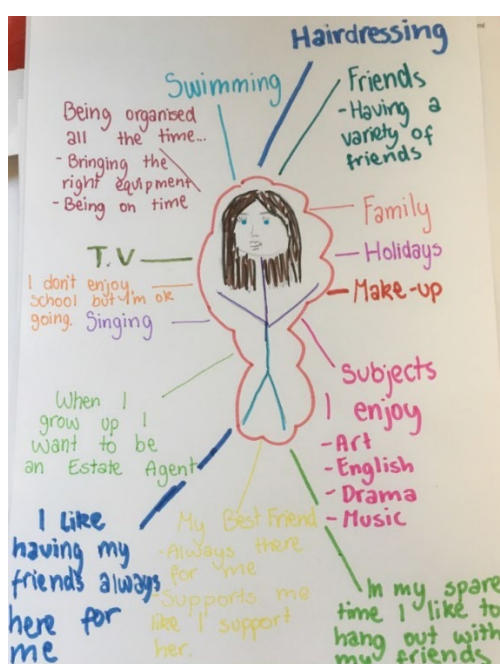 Hairdressing
Swimming
Friends
- Having a
variety of
friends
Being organised
all the time...
- Bringing the
right equipment
- Being on time
Family
T.V
Holidays
I don't enjoy
school but I'm ok
going.
Make-up
Singing
Subjects
I enjoy
- Art
- English
- Drama
- Music
When I
grow up I
want to be
an Estate Agent
I like
having my
friends always
here for
me
My Best Friend
- Always there
for me
- Supports me
like I support
her.
In my spare
time I like to
hang out with
my friends